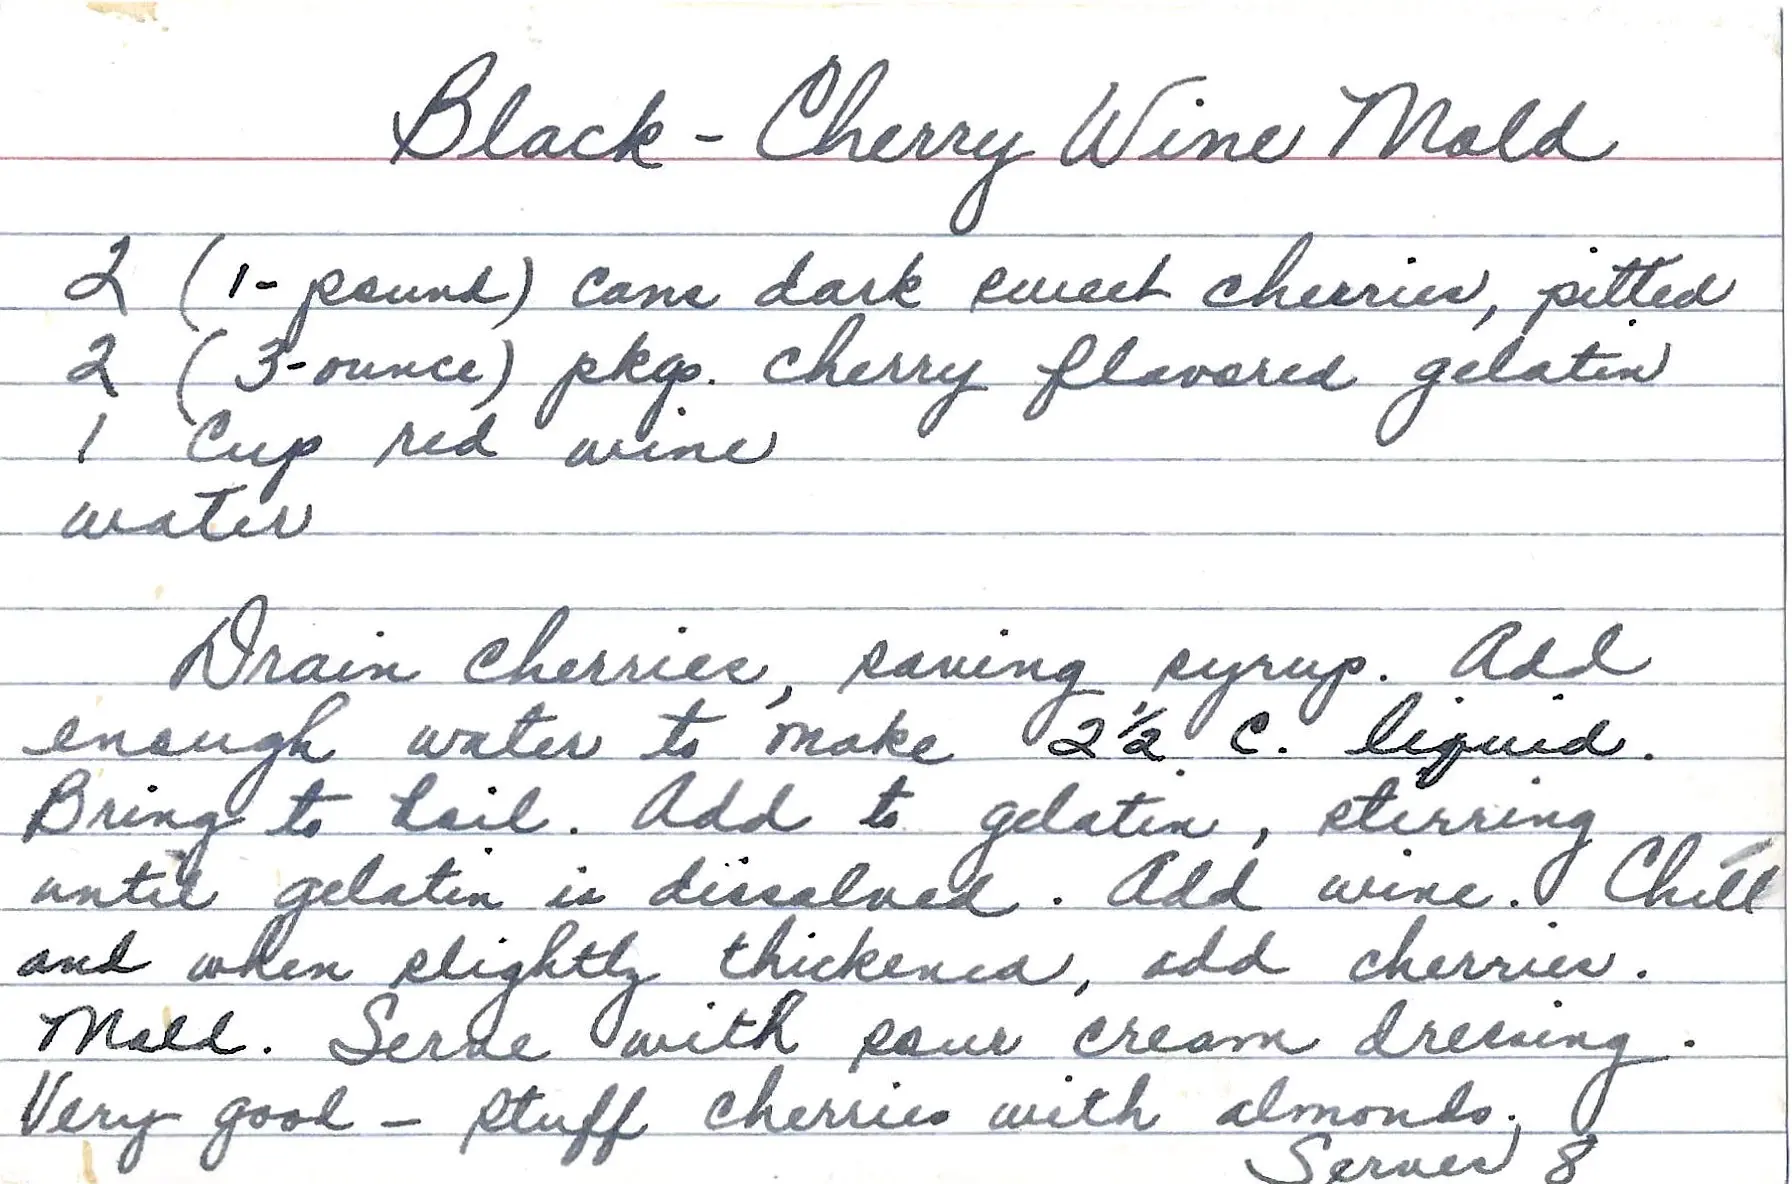 Black - Cherry Wine Mold
2 (1-pound) cans dark sweet cherries, pitted
2 (3-ounce) pkgs. cherry flavored gelatin
1 Cup red wine
water
Drain cherries, saving syrup. Add
enough water to make 2 1/2 c. liquid.
Bring to boil. Add to gelatin, stirring
until gelatin is dissolved. Add wine. Chill
and when slightly thickened, add cherries.
Mold. Serve with sour cream dressing.
Very good - stuff cherries with almonds.
Serves 8